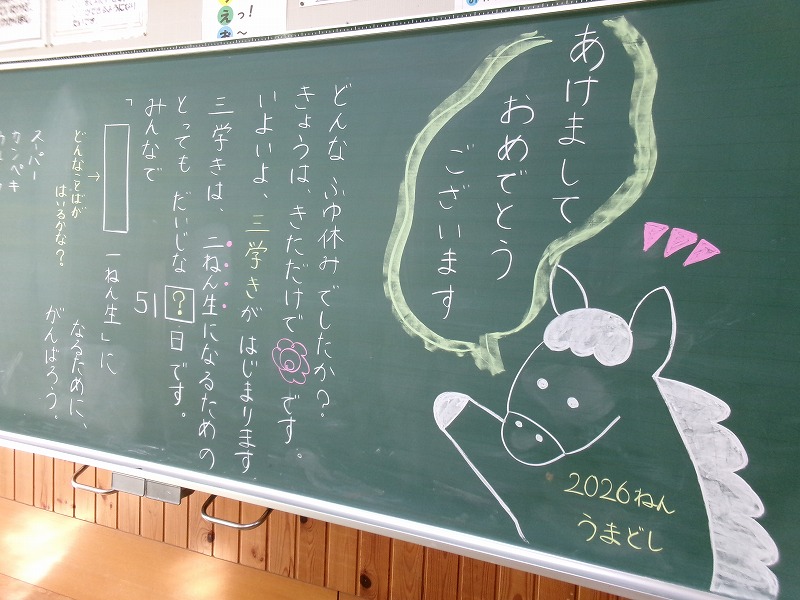 あけまして
おめでとう
ございます
2026ねん
うまどし
どんな ふゆ休みでしたか？
きょうは、きただけで です。
いよいよ、三学きがはじまります
三学きは、二ねん生になるための
とっても だいじな ？ 日です。
51
みんなで
「 一ねん生」に
なるために、
がんばろう。
どんなことばが
はいるかな？
スーパー
カンペキ